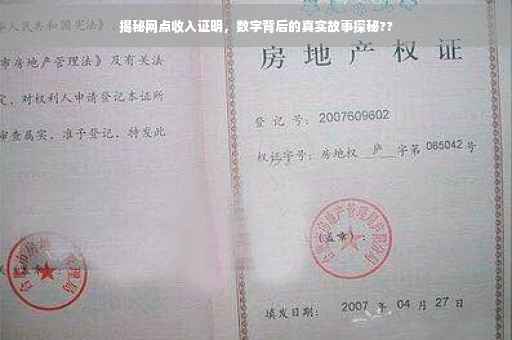 揭秘网点收入证明，数字背后的真实故事探秘??
人民共和国宪法》
市房地产管理法》及有关
定，对权利人申请登记本证所
审查属实，准予登记，特发此
房地产权证
登记号：2007609602
权证字号：房地权 庐 字第 065042 号
(盖章)：
填发日期： 2007 年 04 月 27 日